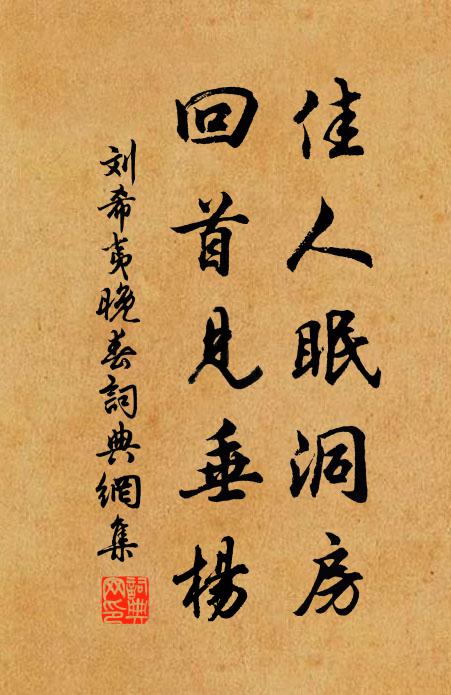 佳人眠洞房
回首見垂楊
刘希夷晚春詞典網集
詞典网印